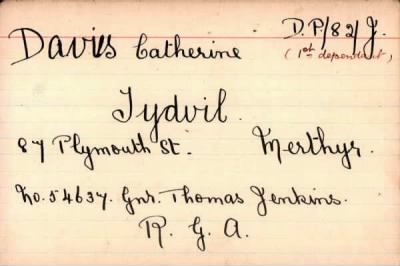 Davies Catherine D.P/82/J.
(1st dependant)
Tydvil.
87 Plymouth St. Merthyr.
No. 54637. Gnr. Thomas Jenkins.
R. G. A.